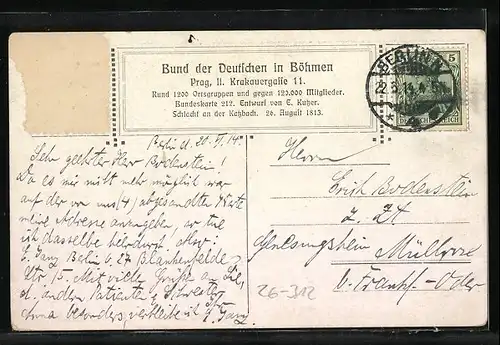 Bund der Deutschen in Böhmen
Prag, II. Krakauergasse 11.
Rund 1200 Ortsgruppen und gegen 120.000 Mitglieder.
Bundeskarte 212. Entwurf von E. Kutzer.
Schlacht an der Katzbach. 26. August 1813.
BERLIN
5
DEUTSCHES REICH
Berlin d. 20. 5. 14.
Sehr geehrter Herr Bodenstein!
Da es mir nicht mehr möglich war
auf der von uns (4) abgesandten Karte
meine Adresse anzugeben, so tue
ich dasselbe hierdurch. Also:
Ganz Berlin 27 Blankenfelde
Str. 15. Mit vielen Grüßen an Sie,
d. andern Patienten & Schwester
Anna besonders, verbleibe ich Ihr
Ganz.
Herrn
Erich Bodenstein
z. Zt
Genesungsheim Müllrose
b. Frankf-Oder
26-312